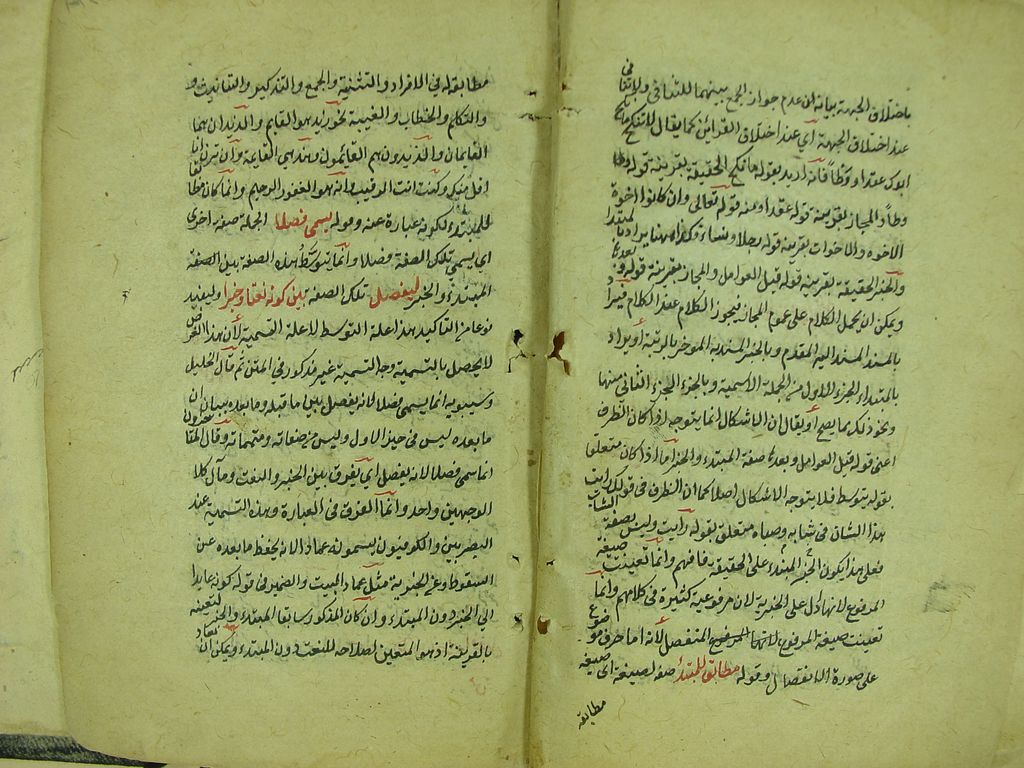 باختلاف الجهة بيانه ان عدم جواز الجمع بينهما للتنافي ولا تنافي
عند اختلاف الجهة اي عند اختلاف القرائن كما يقال لا تنكح ما نكح
ابوك عقدا ووطأ فانه اريد بقوله ما نكح الحقيقة بقرينة قوله
وطأ والمجاز بقرينة قوله عقدا ومنه قوله تعالى وان كانوا اخوة
الاخوة والاخوات بقرينة قوله رجالا ونساء وكذا ههنا يراد بالمبتدأ
والخبر الحقيقة بقرينة قوله قبل العوامل والمجاز بقرينة قوله وبعدها
ويمكن ان يحمل الكلام على عموم المجاز فيجوز الكلام عند الكلام فيراد
بالمبتدأ المسند اليه المقدم وبالخبر المسند به المؤخر بالرتبة او يراد
بالمبتدأ الجزء الاول من الجملة الاسمية وبالجزء الجزء الثاني منها
ونحو ذلك مما يصح او يقال ان الاشكال انما يتوجه اذا كان الظرف
اعني قوله قبل العوامل وبعدها صفة المبتدأ والخبر اما اذا كان متعلقا
بقوله يتوسط فلا يتوجه الاشكال اصلا كما ان الظرف في قولك رايت
هذا الشاب في شبابه وصباه متعلق بقوله رايت وليس بصفة الشاب
فعلى هذا يكون الخبر المبتدأ على الحقيقة فافهم وانما تعينت صيغة
المرفوع لانها ادل على الخبرية لان مرفوعية كثيرة في كلامهم وانما
تعينت صيغة المرفوع لانها المرفوع المنفصل لانه اما حرف موضوع
على صورة الانفصال وقوله مطابق للمبتدأ صفة لصيغة اي صيغة
مطابقة
مطابقة له في الافراد والتثنية والجمع والتذكير والتانيث و
والتكلم والخطاب والغيبة نحو زيد هو القايم والزيدان هما
القايمان والزيدون هم القايمون وهند هي القايمة وان ترن انا
اقل منك وكنت انت الرقيب وانه هو الغفور الرحيم وانما كان مطابقا
للمبتدأ لكونه عبارة عنه وقوله يسمى فصلا الجملة صفة اخرى
اي يسمى تلك الصفة فصلا وانما يتوسط هذه الصفة بين الصفة
المبتدأ والخبر ليفصل تلك الصفة بين كونه نعتا وخبرا وليفيد
نوعا من التاكيد هذا علة التوسط لا علة التسمية لان هذا الغرض
لا يحصل بالتسمية وجه التسمية غير مذكور في المتن ثم قال الخليل
وسيبويه انما يسمى فصلا لانه يفصل بين ما قبله وما بعده ببيان ان
ما بعده ليس في حيز الاول وليس من صفاته ومتمماته وقال المتاخرون
انما سمي فصلا لانه يفصل اي يفرق بين الخبر والنعت ومآل كلا
الوجهين واحد وانما الفرق في العبارة وهذه التسمية عند
البصريين والكوفيون يسمونه عمادا لانه يحفظ ما بعده عن
السقوط وعن الخبرية مثل عماد البيت والضمير في قوله كونه عايدا
الى الخبر دون المبتدأ وان كان المذكور سابقا المبتدأ والخبر لتعينه
بالقرينة اذ هو المتعين لصلاحه للنعت دون المبتدأ ويمكن ان